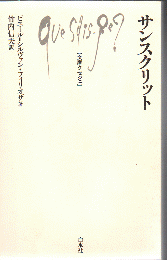 サンスクリット
que sais-je?
【文庫クセジュ】
ピエール=シルヴァン・フィリオザ著
竹内信夫訳
白水社